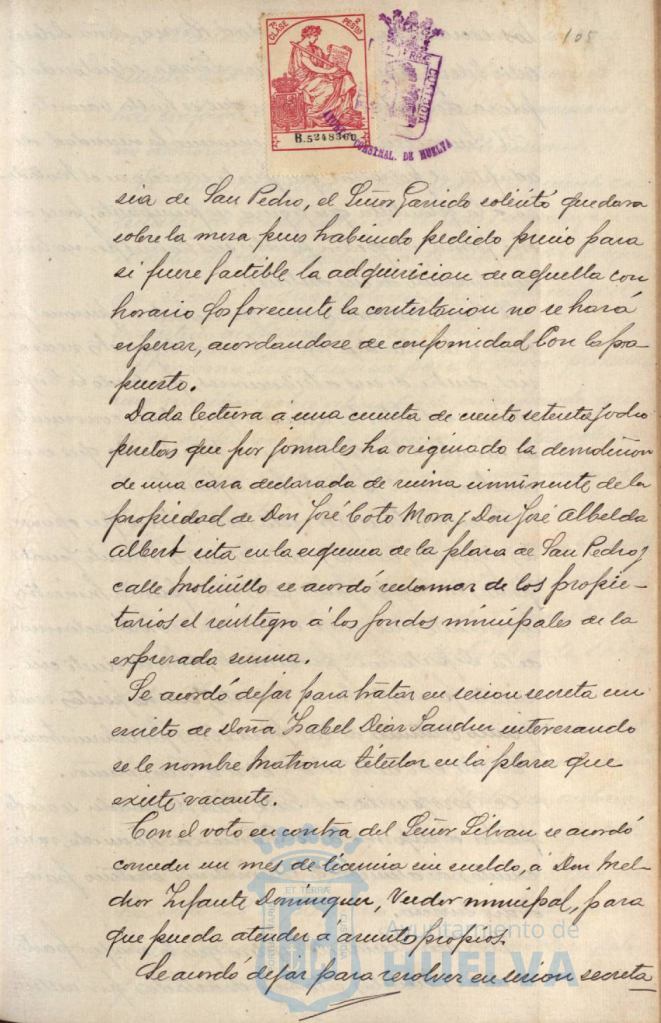 108
7ª CLASE 2 PESETAS
B.5248360
AYUN CONSTNAL. DE HUELVA
CUSTODIA
sia de San Pedro, el Señor Garrido solicitó quedara
sobre la mesa pues habiendo pedido precio para
si fuere factible la adquisicion de aquella con
horario fosforecente la contestacion no se hará
esperar, acordandose de conformidad con lo pro
puesto.
Dada lectura á una cuenta de ciento setenta y ocho
pesetas que por jornales ha originado la demolicion
de una casa declarada de ruina inminente de la
propiedad de Don José Coto Mora y Don José Albelda
Albert sita en la esquina de la plaza de San Pedro y
calle Molinillo se acordó reclamar de los propie-
tarios el reintegro á los fondos municipales de la
expresada suma.
Se acordó dejar para tratar en sesion secreta un
escrito de Doña Isabel Diaz Sander interesando
se le nombre Matrona titular en la plaza que
existe vacante.
Con el voto en contra del Señor Silvan se acordó
conceder un mes de licencia sin sueldo, á Don Mel-
chor Infante Dominguez, Veedor municipal, para
que pueda atender á asuntos propios.
Se acordó dejar para resolver en sesion secreta
Ayuntamiento de
HUELVA